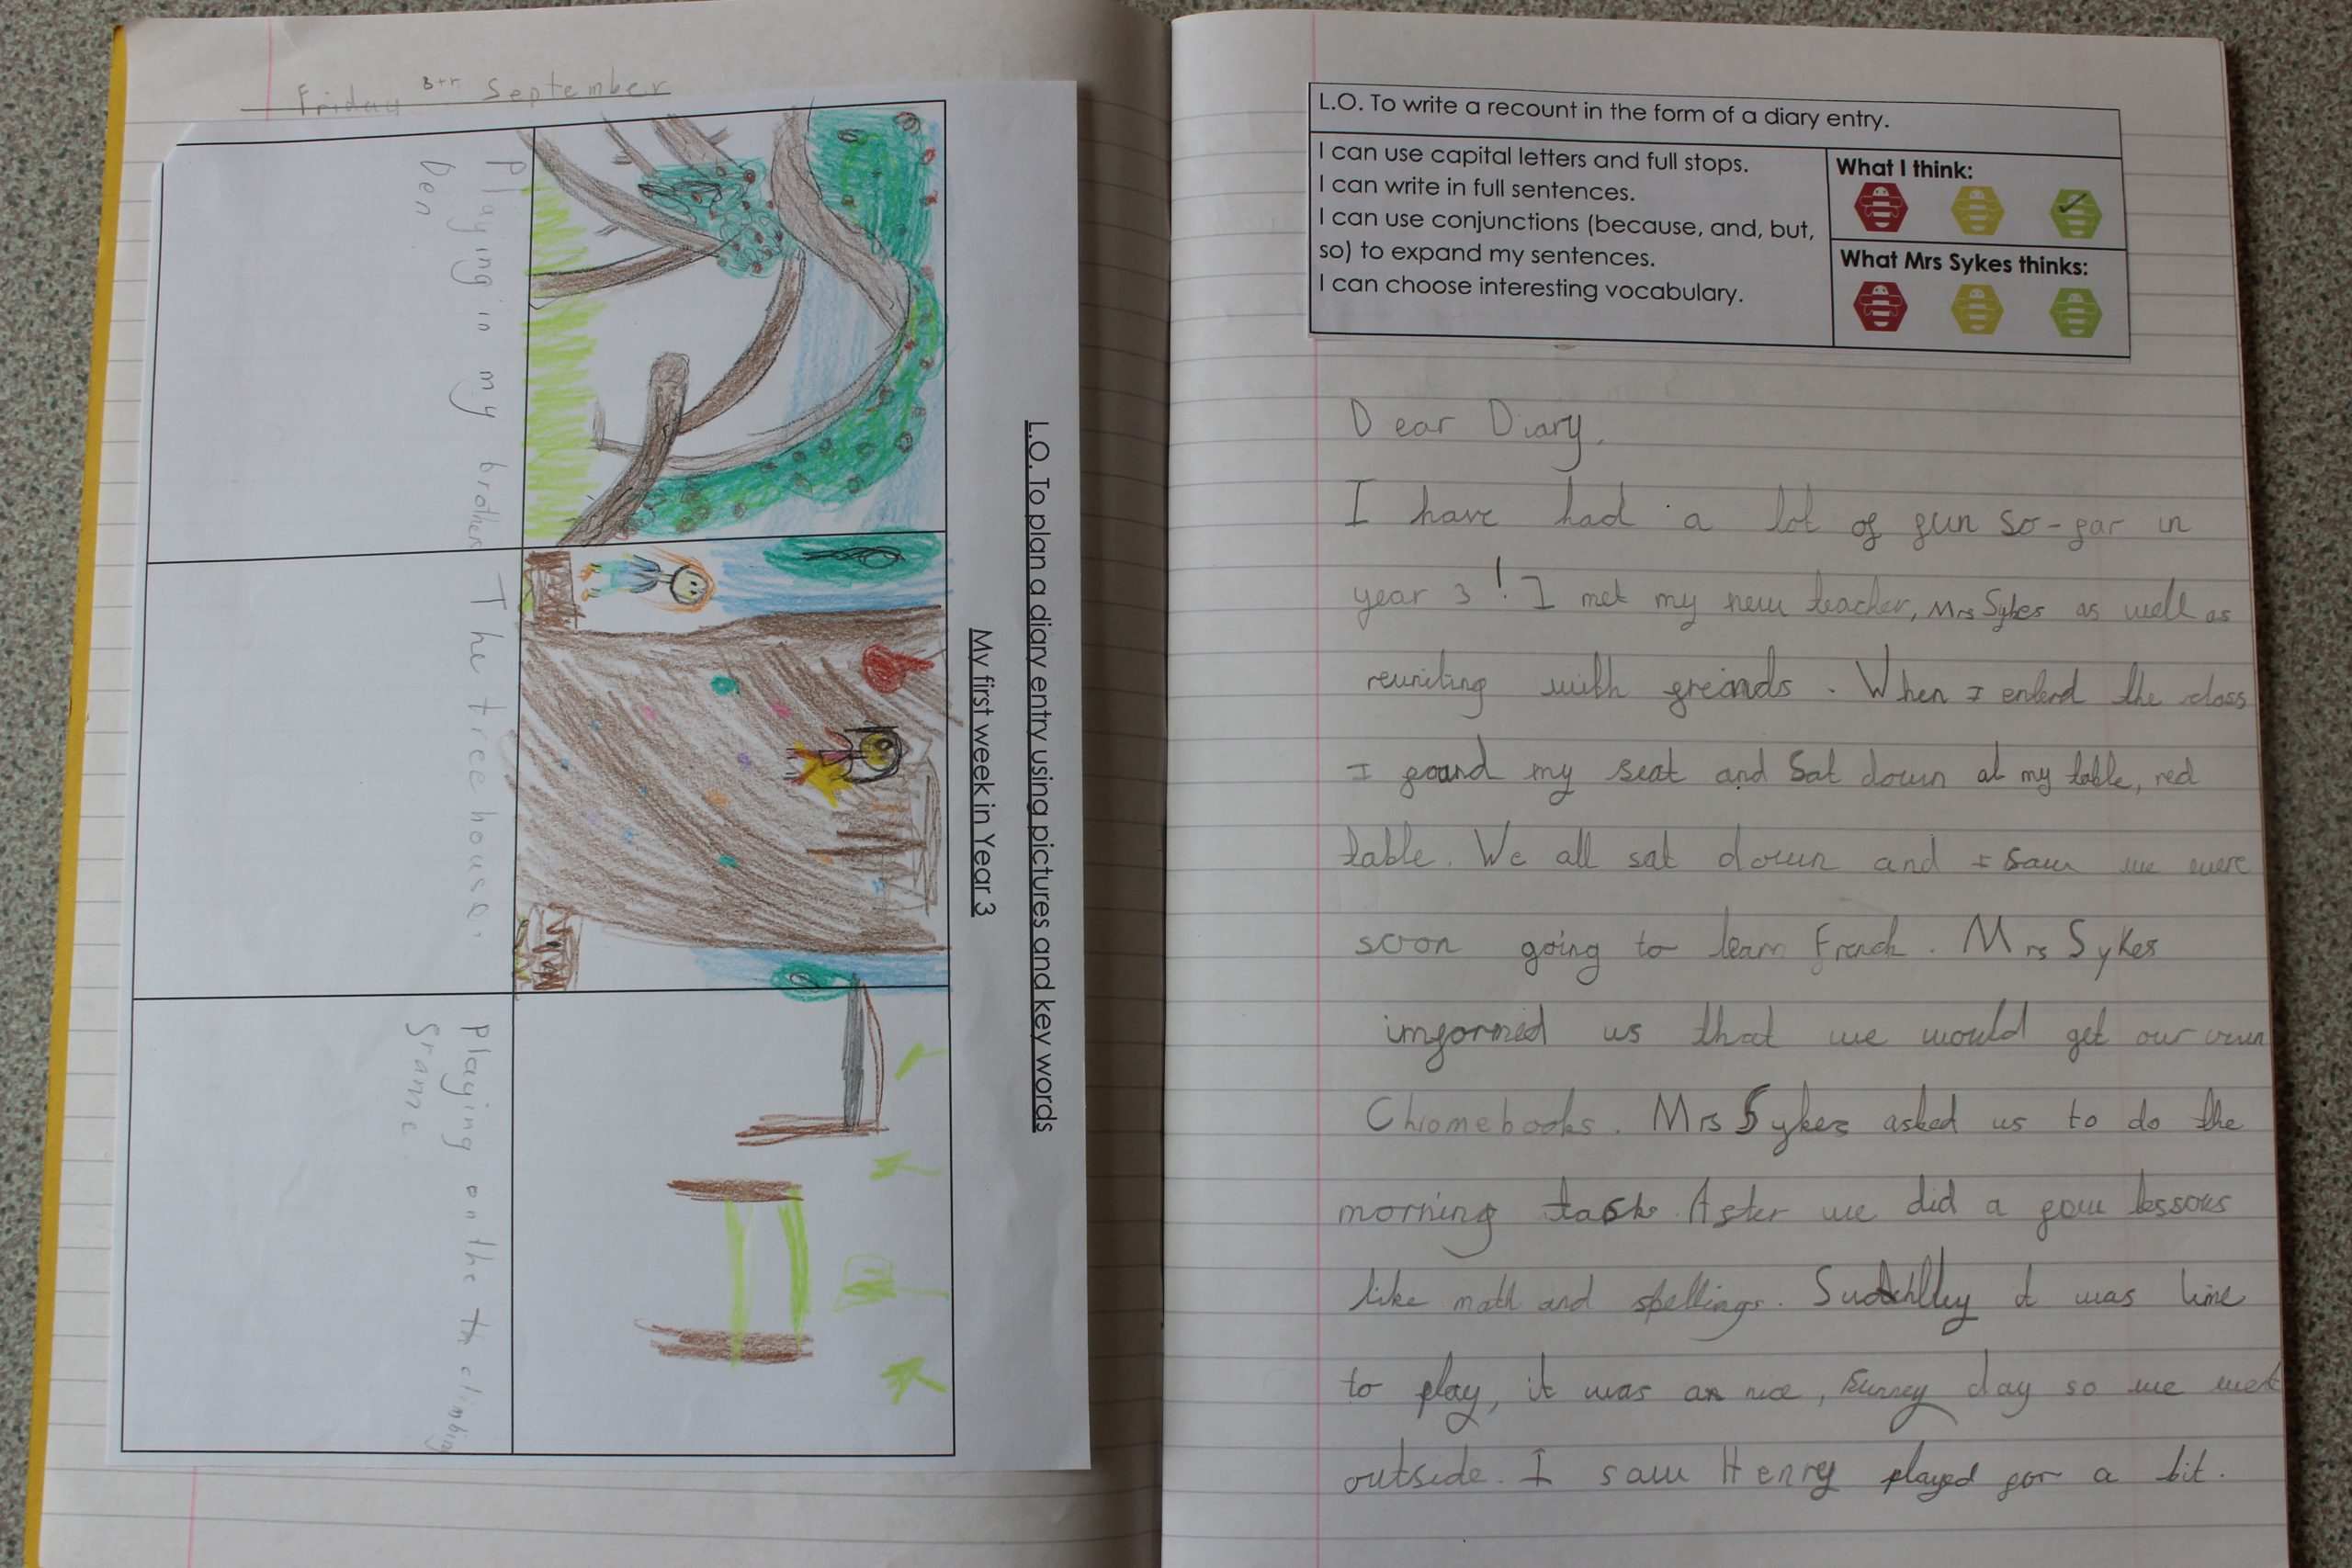 Friday 3rd September
L.O. To plan a diary entry using pictures and key words
My first week in Year 3
Playing in my brothers
Den
The treehouse.
Playing on the th climbing
Srame
L.O. To write a recount in the form of a diary entry.
I can use capital letters and full stops.
I can write in full sentences.
I can use conjunctions (because, and, but,
so) to expand my sentences.
I can choose interesting vocabulary.
What I think:
What Mrs Sykes thinks:
Dear Diary,
I have had a lot of fun so-far in
year 3! I met my new teacher, Mrs Sykes as well as
reuniting with freinds. When I enterd the class
I found my seat and sat down at my table, red
table. We all sat down and I saw we were
soon going to learn French. Mrs Sykes
imformed us that we would get our own
Chromebooks. Mrs Sykes asked us to do the
morning task. After we did a few lessons
like math and spellings. it was time
to play, it was a nice, sunney day so we went
outside. I saw Henry played for a bit.